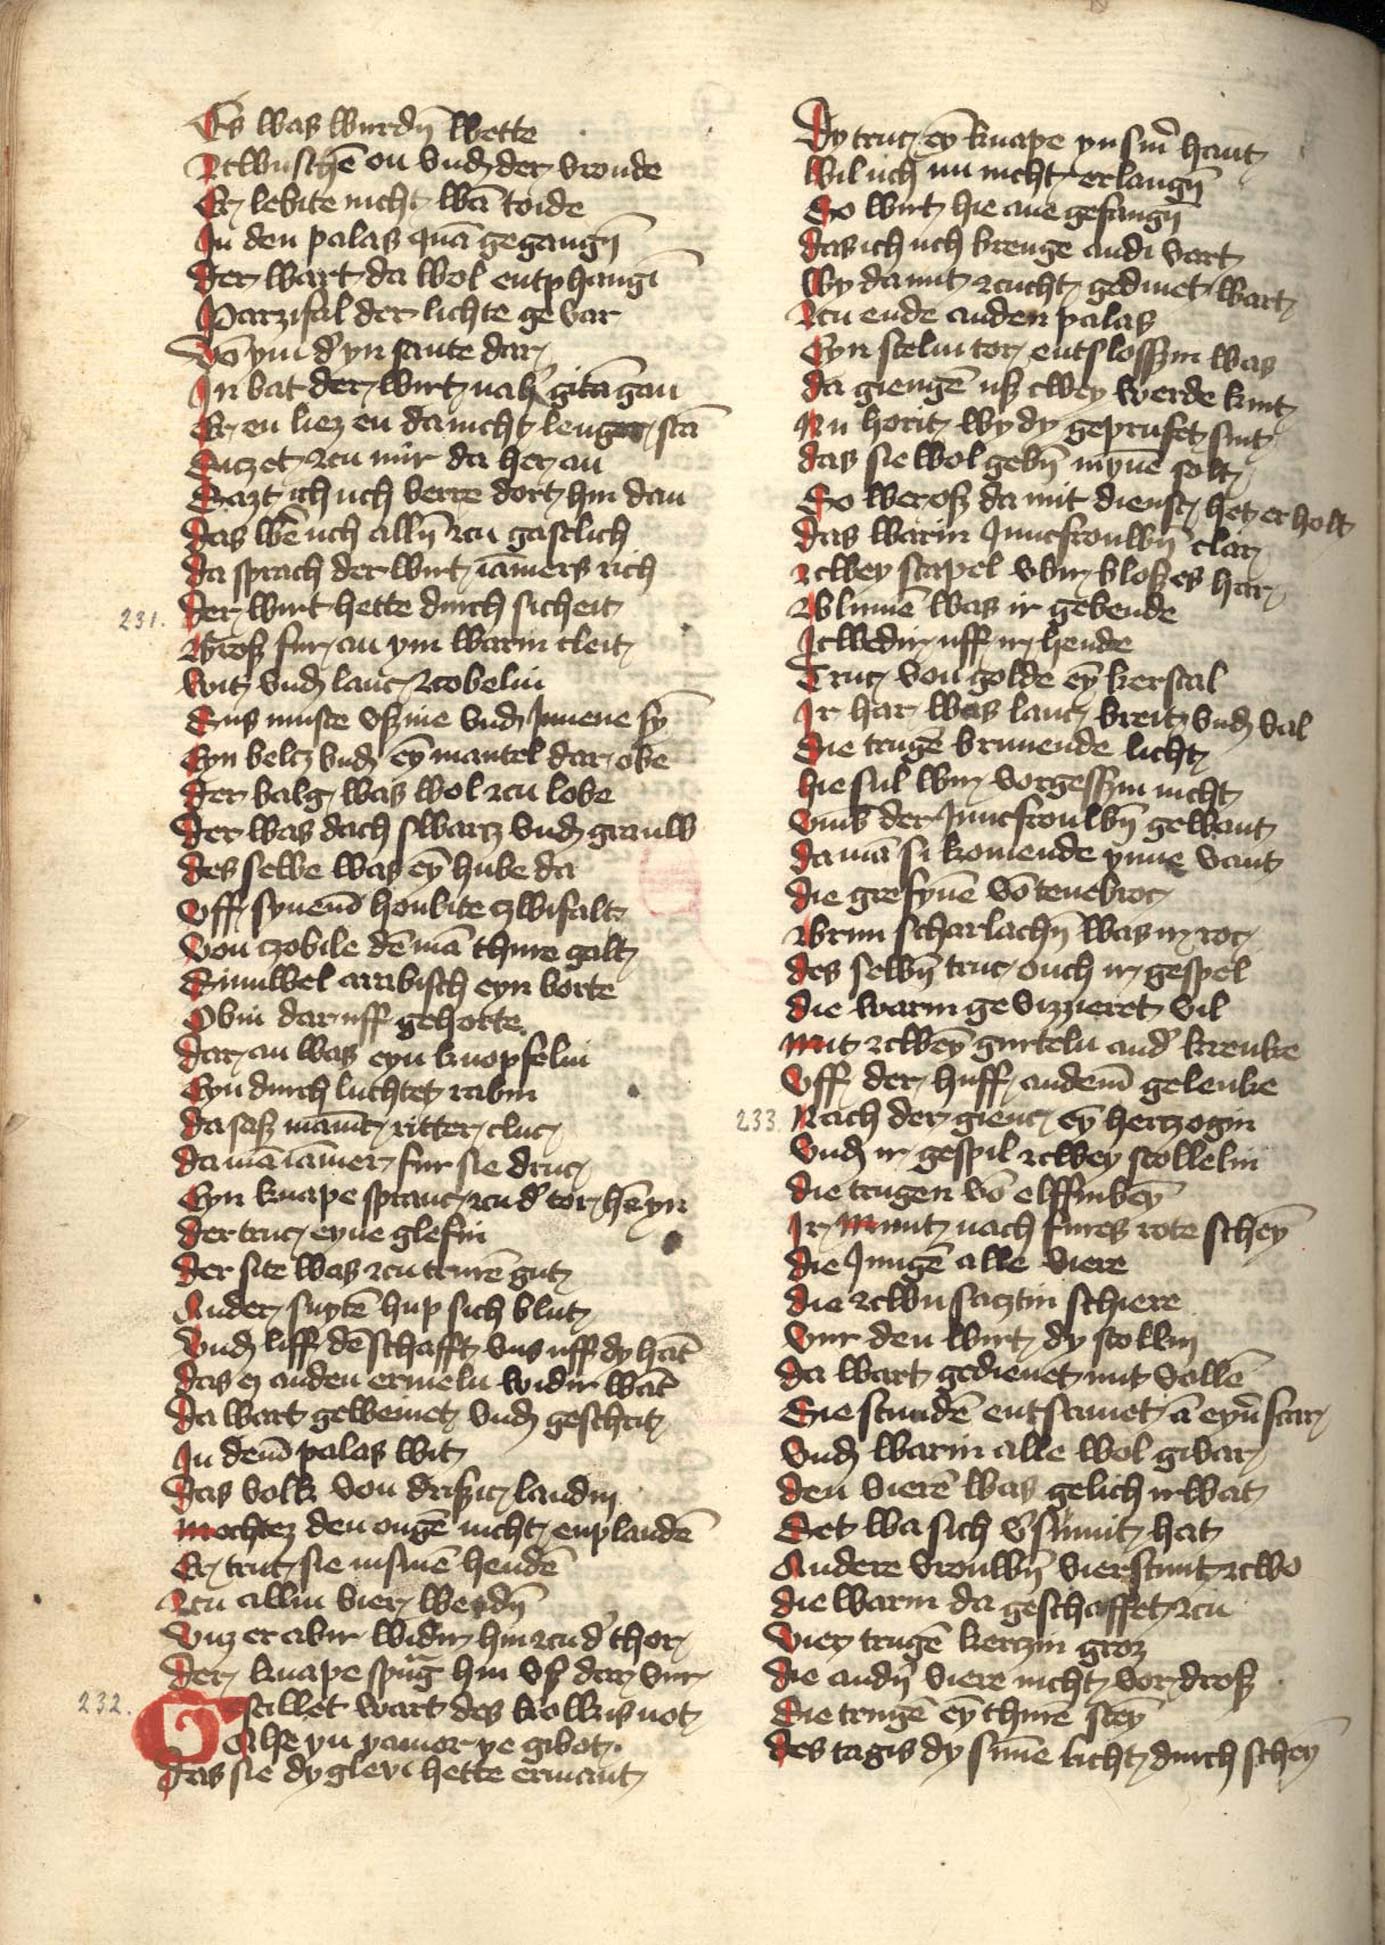 Es was wurdn̄ wette
Zcwuschē on vnd der vronde
Er lebite nicht wā toide
In den palas quā gegangn̄
Der wart da wol entphangī
Parzifal der lichte ge var
Vō ym d' yn sante dar
In bat der wirt nah' gitā gan
Er en liez en da nicht lenger stā
Sitzet zcu mir da her an
Sazt ich uch verre dort hin dan
Das wē uch alln̄ zcu gastlich
Da sprach der wirt iāmers rich
231.
Der wirt hette durch sicheit
Groß fur an ym warin cleit
Wit vnd lanc zcobelin
Sus muste vßine vnd Innene sȳ
Eyn beltz vnd eȳ mantel dar obe
Der balg was wol zcu lobe
Der was dach swartz vnd grauw
Des selbe was eȳ hube da
Vff synem̄ houbite czwifalt
Von czobile dē mā thure galt
Sinwel arabisch eyn borte
Obin dar uff gehorte
Dar an was eyn knopfelin
Eyn durch luchtet rabin
Da saß manic ritter cluc
Da mā iāmer fur sie druc
Eyn knape spranc zcu d' tor hē yn
Der truc eyne glefin
Der site was zcu trurē gut
An der snytē hup sich blut
Vnd liff dē schafft vns uff dy hāt
Das ez an den ermeln widir wāt
Da wart geweinet vnd geschrit
In dem̄ palas wit
Das volk von drißic landin
Mochtez den ougē nicht enplandē
Er truc sie in sinē hendē
Zcu allin vier wendn̄
Vnz er abir widir hin zcu d' thor
Der knape sprāg hin vß dar vur
232.
Gestillet wart des volkis not
Alse yn yamor ye gibot
Das sie dy glevī hette ermant
Dy truc eȳ knape yn sin' hant
Wil uch nu nicht erlangn̄
So wirt hie ane gefangn̄
Das ich uch brenge an di vart
Wy da mit zcucht gedinet wart
Zcu ende an den palas
Eyn stelin tor entsloßzin was
Da giengē uß zcwey werde kint
Nu horit wy dy geprufet sint
Das sie wol gebn̄ mynē solt
So wer oß da mit dienst het er holt
Das warin Juncfrouwn̄ clar
Zcwey scapel vbir bloßes har
Blumē was ir gebende
Itwedir uff ir hende
Truc von golde eȳ kerstal
Ir har was lanc breit vnd val
Die trugē brinnende licht
Hie sul wir vorgeßzin nicht
Vmb der Juncfrouwn̄ gewant
Da mā si komende ynne vant
Die grefynē vō tenebroc
Brun scharlachn̄ was ir roc
Des selbn̄ truc ouch ir gespel
Die warin gevizzieret vil
Mit zcweȳ gurteln an d' krenke
Vff der huff an dem̄ gelenke
233.
Nach der gienc eȳ hertzogin
Vnd ir gespil zcwey stollelin
Die trugen vō elffinbeȳ
Ir munt nach fures rote scheȳ
Die Jungē alle viere
Die zcwu satztin schiere
Vur den wirt dy stolln̄
Da wart gedienet mit vollē
Sie stundē entsamet ā eyn' scar
Vnd warin alle wol givar
Den vierē was gelich ir wat
Set wa sich v'sumit hat
Andere vrouwn̄ vierstunt zcwo
Die warin da geschaffet zcu
Vier trugē kertzin groz
Die andn̄ viere nicht vordroß
Sie trugē eȳ thurē steȳ
Des tagis dy sunē licht durch scheȳ